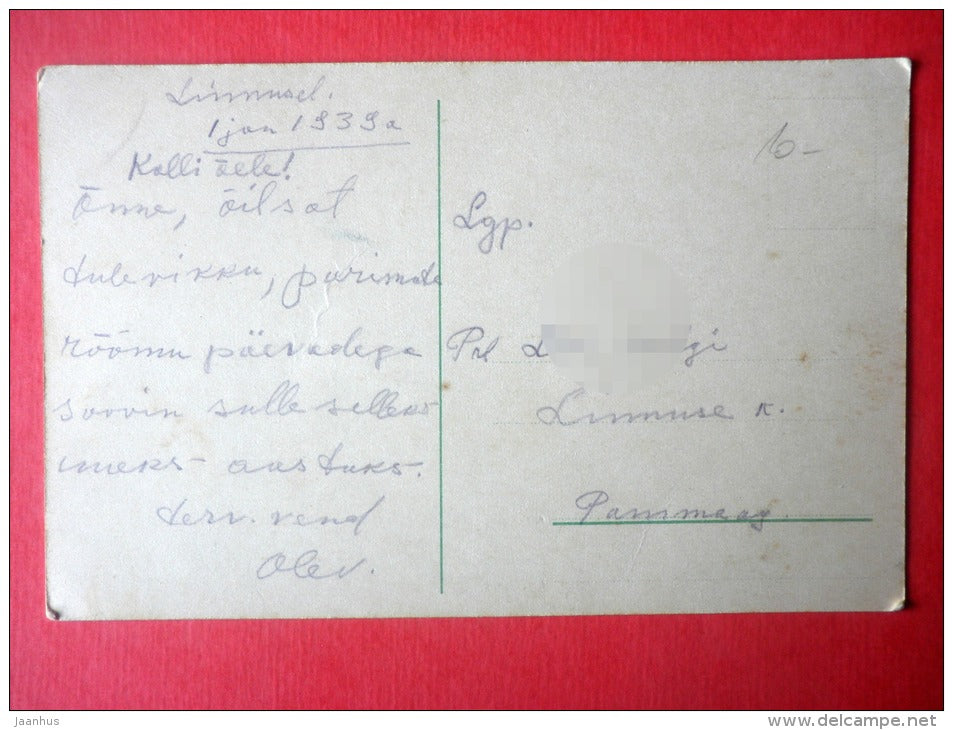 Linnusel.
1 jan 1939a
Kalli õele!
Õnne, õilsat
tulevikku, parimate
rõõmu päevadega
soovin sulle selleks
uueks aastaks.
terv. vend
Olev.
10-
Lgp.
Prl
Linnuse k.
Pammaag.
Jaanhus
www.delcampe.net